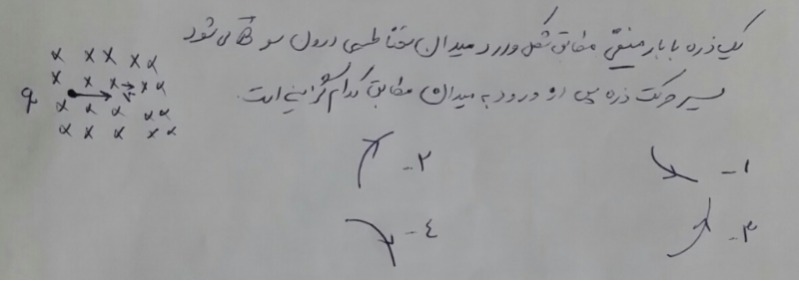 یک ذره با بار منفی مطابق شکل وارد میدان مغناطیسی درون سو می شود
مسیر حرکت ذره پس از ورود به میدان مطابق کدام گزینه است.
q
x x x x x
x x x x x
v
x x x x x x
x x x x x x
۱- ۲-
۳- ٤-